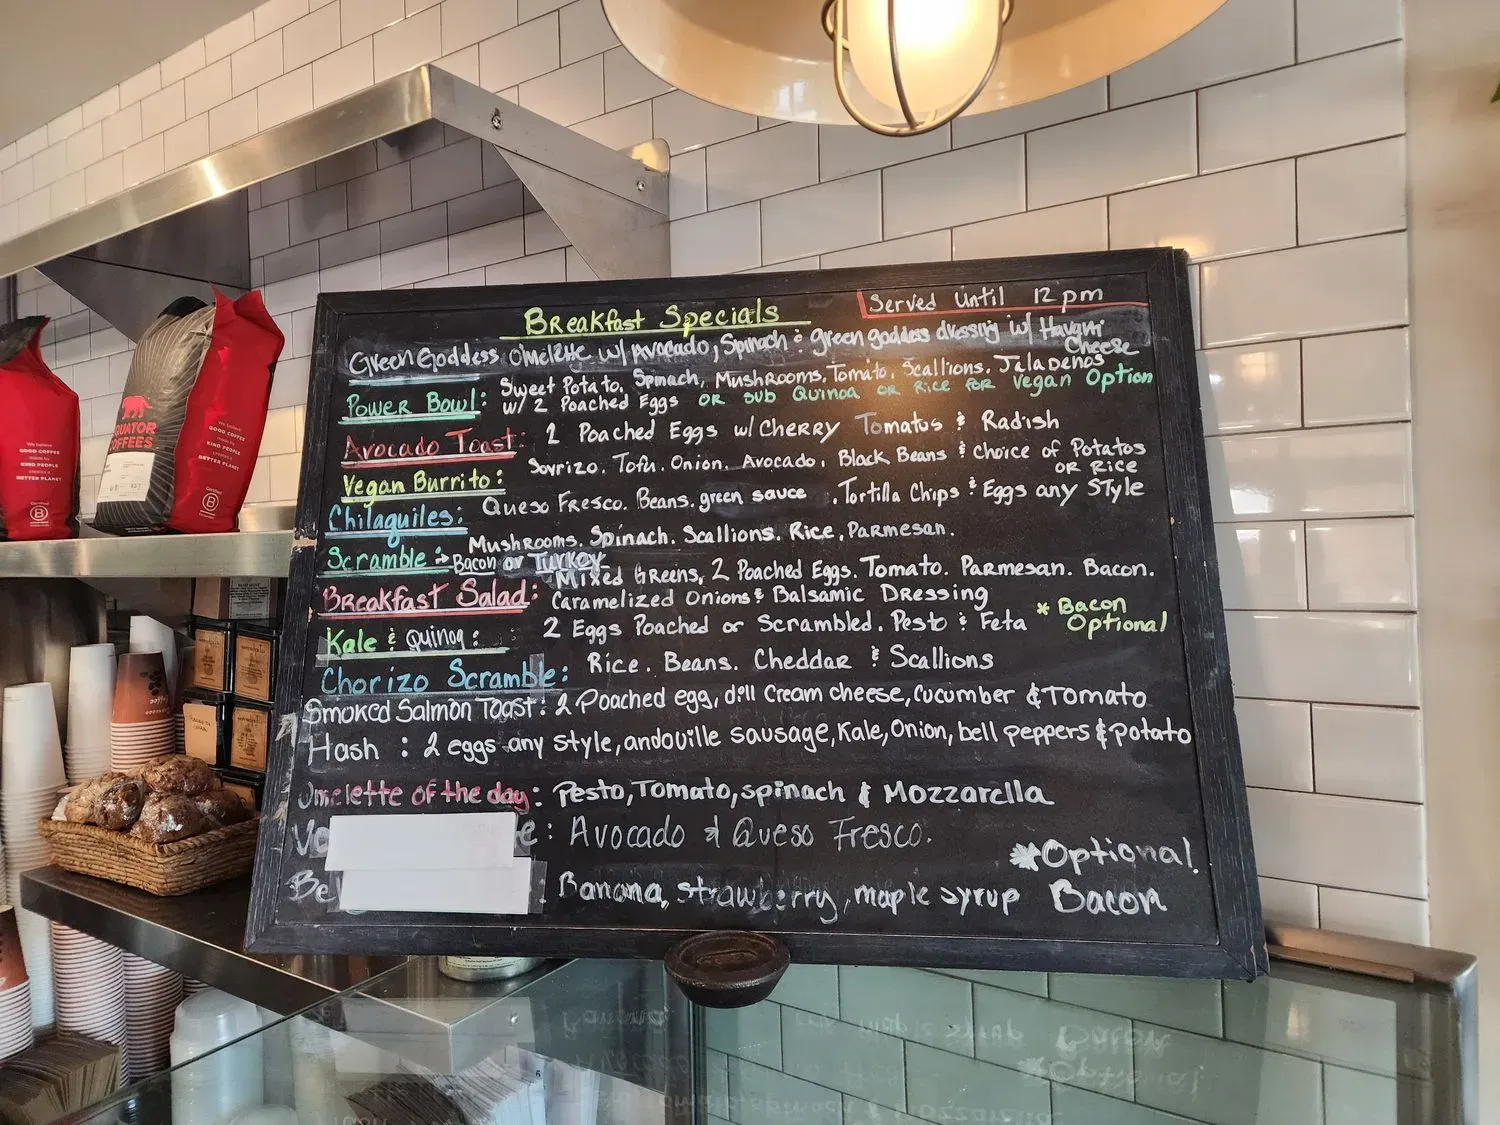 Breakfast Specials
Served Until 12 pm
Green Goddess Omelette w/ Avocado, Spinach & green goddess dressing w/ Havarti
Cheese
Power Bowl: Sweet Potato, Spinach, Mushrooms, Tomato, Scallions, Jalapenos
w/ 2 Poached Eggs OR sub Quinoa OR Rice FOR Vegan Option
Avocado Toast: 2 Poached Eggs w/ CHERRY Tomatus & Radish
Vegan Burrito: Soyrizo. Tofu. Onion. Avocado, Black Beans & Choice of Potatos
OR Rice
Chilaquiles: Queso Fresco. Beans. green sauce . Tortilla Chips & Eggs any STyle
Scramble: Mushrooms. Spinach. Scallions. Rice. Parmesan.
Bacon or Turkey
Breakfast Salad: Mixed Greens, 2 Poached Eggs. Tomato. Parmesan. Bacon.
Caramelized Onions & Balsamic Dressing
Kale & Quinoa: 2 Eggs Poached or Scrambled. Pesto & Feta * Bacon
Optional
Chorizo Scramble: Rice. Beans. Cheddar & Scallions
Smoked Salmon Toast: 2 Poached egg, dill Cream cheese, Cucumber & Tomato
Hash : 2 eggs any style, andouille sausage, Kale, Onion, bell peppers & potato
Omelette of the day: Pesto, Tomato, spinach & Mozzarella
: Avocado & Queso Fresco.
: Banana, strawberry, maple syrup
*Optional
Bacon
EQUATOR
COFFEES
We believe
GOOD COFFEE
made by
KIND PEOPLE
creates a
BETTER PLANET
Certified
B
We believe
GOOD COFFEE
made by
KIND PEOPLE
creates a
BETTER PLANET
Certified
B